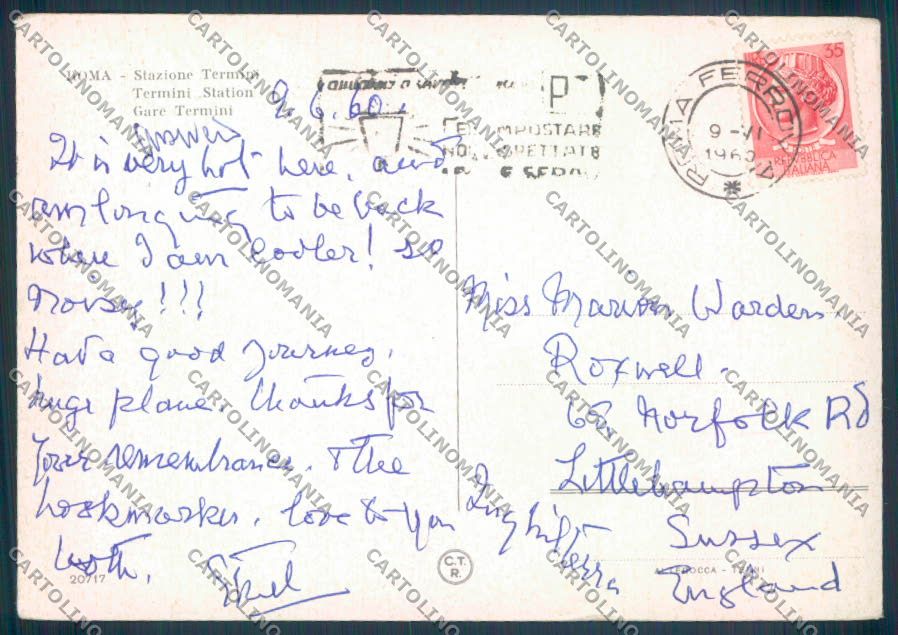 ROMA - Stazione Termini
Termini Station
Gare Termini
9.6.60.
answer
It is very hot here, and
am longing to be back
where I am Cooler! so
Noisy!!!
Had a good journey,
huge plane. Thanks for
your remembrance. & the
bookmarker. love to you
both.
20717
C.T.
R.
P
IMPOSTARE
ROMA FERROVIA
9-VI
1960
35
REPUBBLICA
ITALIANA
Miss Marion Warden.
Roxwell.
62. Norfolk Rd
Littlehampton
Sussex
England
Inghilterra
ALTEROCCA - TERNI
CARTOLINOMANIA